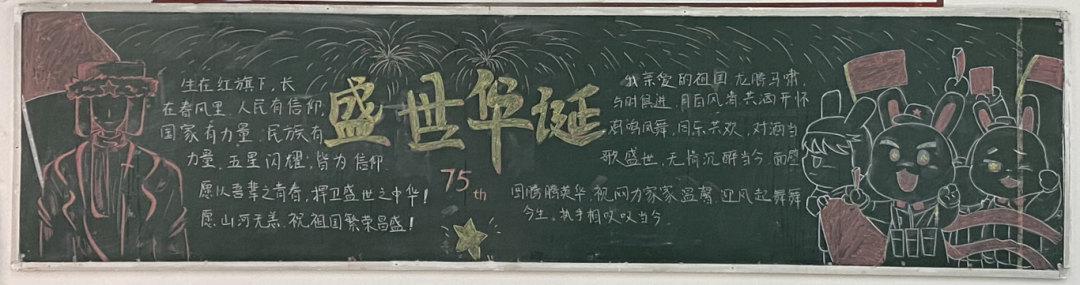 生在红旗下,长
在春风里,人民有信仰,
国家有力量,民族有
力量,五星闪耀,皆为信仰
愿以吾辈之青春,捍卫盛世之中华!
愿山河无恙,祝祖国繁荣昌盛!
盛世华诞
75th
我亲爱的祖国龙腾马啸,
与时俱进,月白风清共酒开怀
鸡鸣凤舞,同乐共欢,对酒当
歌盛世,无情沉醉当今,面壁
图腾腾英华,祝网力家家温馨,迎风起舞舞
今生,执手相叹叹当今